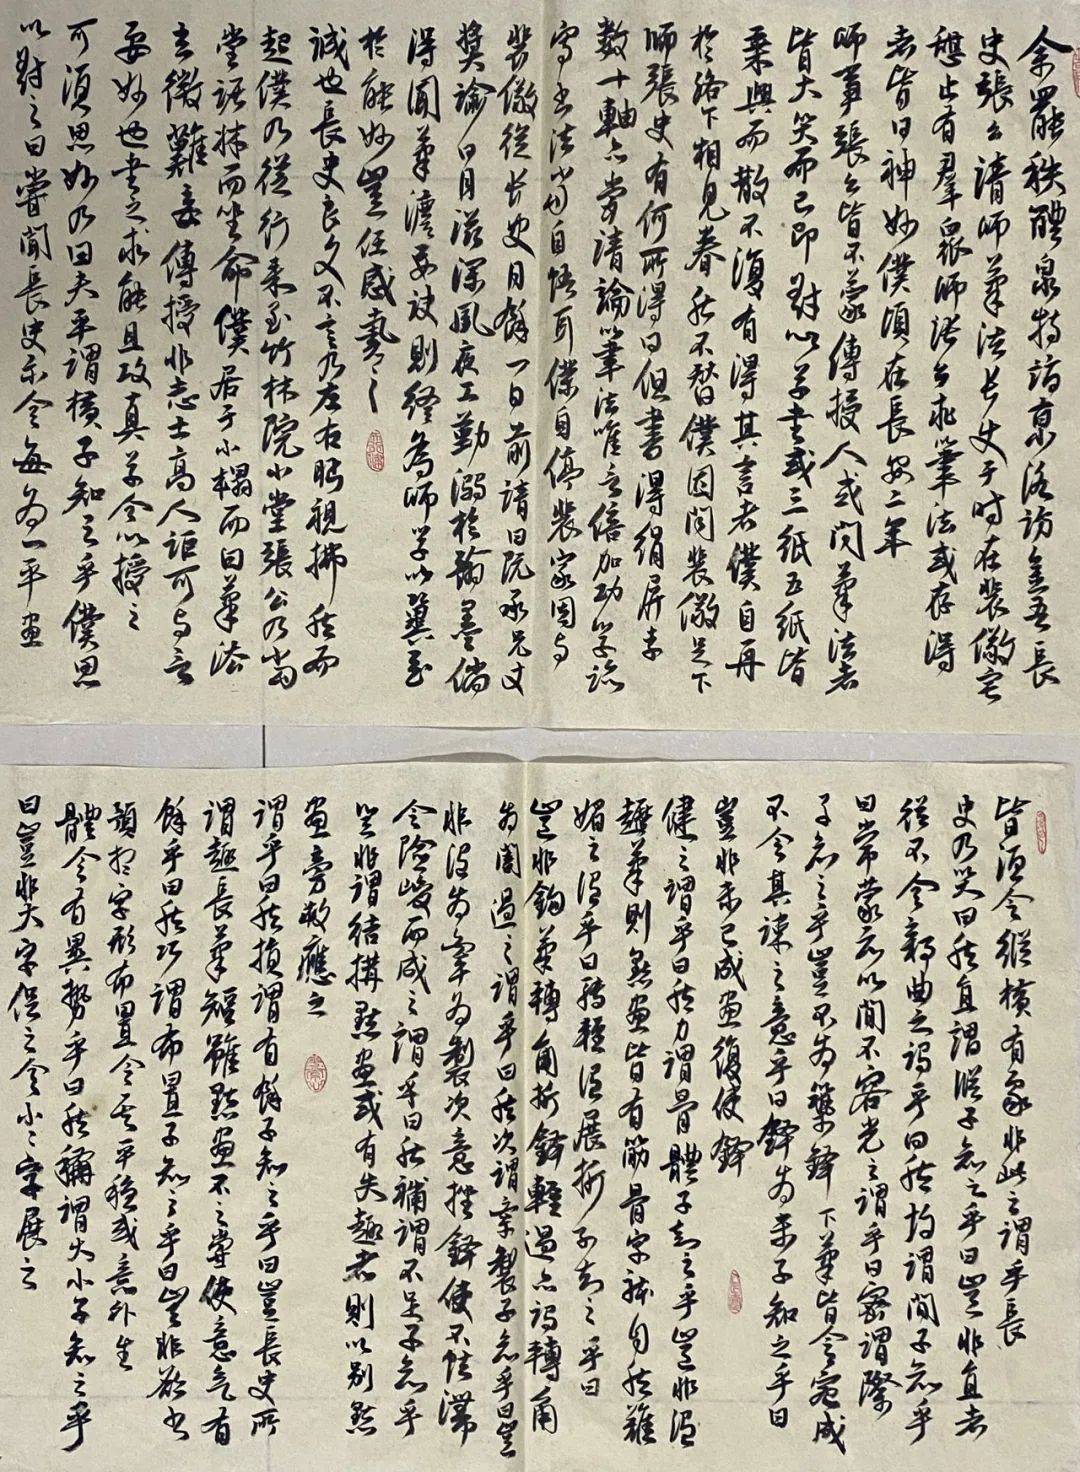 余罷秩醴泉特詣京洛訪金吾長
史張公請師筆法長史于時在裴儆宅
憩止有羣眾師張公求筆法或存得
者皆曰神妙僕頃在長安二年
師事張公皆不蒙傳授人或問筆法者
皆大笑而已即對以草書或三紙五紙皆
乘興而散不復有得其言者僕自再
於洛下相見眷然不替僕因問裴儆足下
師張史有何所得曰但書得絹屏素
數十軸亦嘗請論筆法唯言倍加功學臨
寫書法當自悟耳僕自停裴家因與
裴儆從長史月餘一日前請曰既承兄丈
獎諭日月滋深夙夜工勤溺於翰墨倘
得聞筆法要訣則終為師學以冀至
於能妙豈任感戴之
誠也長史良久不言乃左右眄視拂然而
起僕乃從行來至竹林院小堂張公乃當
堂踞牀而坐命僕居于小榻而曰筆法
玄微難妄傳授非志士高人詎可與言
要妙也書之求能且攻真草今以授之
可須思妙乃曰夫平謂橫子知之乎僕思
以對之曰嘗聞長史示令每為一平畫
皆須令縱橫有象非此之謂乎長
史乃笑曰然直謂縱子知之乎曰豈非直者
從不令邪曲之謂乎曰然均謂間子知乎
曰嘗蒙示以間不容光之謂乎曰密謂際
子知之乎豈不為築鋒下筆皆令宛成
不令其疎之意乎曰鋒為末子知之乎曰
豈非末已成畫復使鋒
健之謂乎曰然力謂骨體子知之乎豈非謂
趯筆則點畫皆有筋骨字體自然雄
媚之謂乎曰轉輕謂展折子知之乎曰
豈非鉤筆轉角折鋒輕過亦謂轉角
為闇過之謂乎曰然次謂牽製子知乎曰豈
非謂為牽為製次意挫鋒使不怯滯
令險峻而成之謂乎曰然補謂不足子知乎
豈非謂結搆點畫或有失趣者則以別點
畫旁救應之
謂乎曰然損謂有餘子知之乎曰豈長史所
謂趣長筆短雖點畫不之嘗使意氣有
餘乎曰然巧謂布置子知之乎曰豈非欲書
預想字形布置令其平穩或意外生
體令有異勢乎曰然稱謂大小子知之乎
曰豈非大字促之令小小字展之